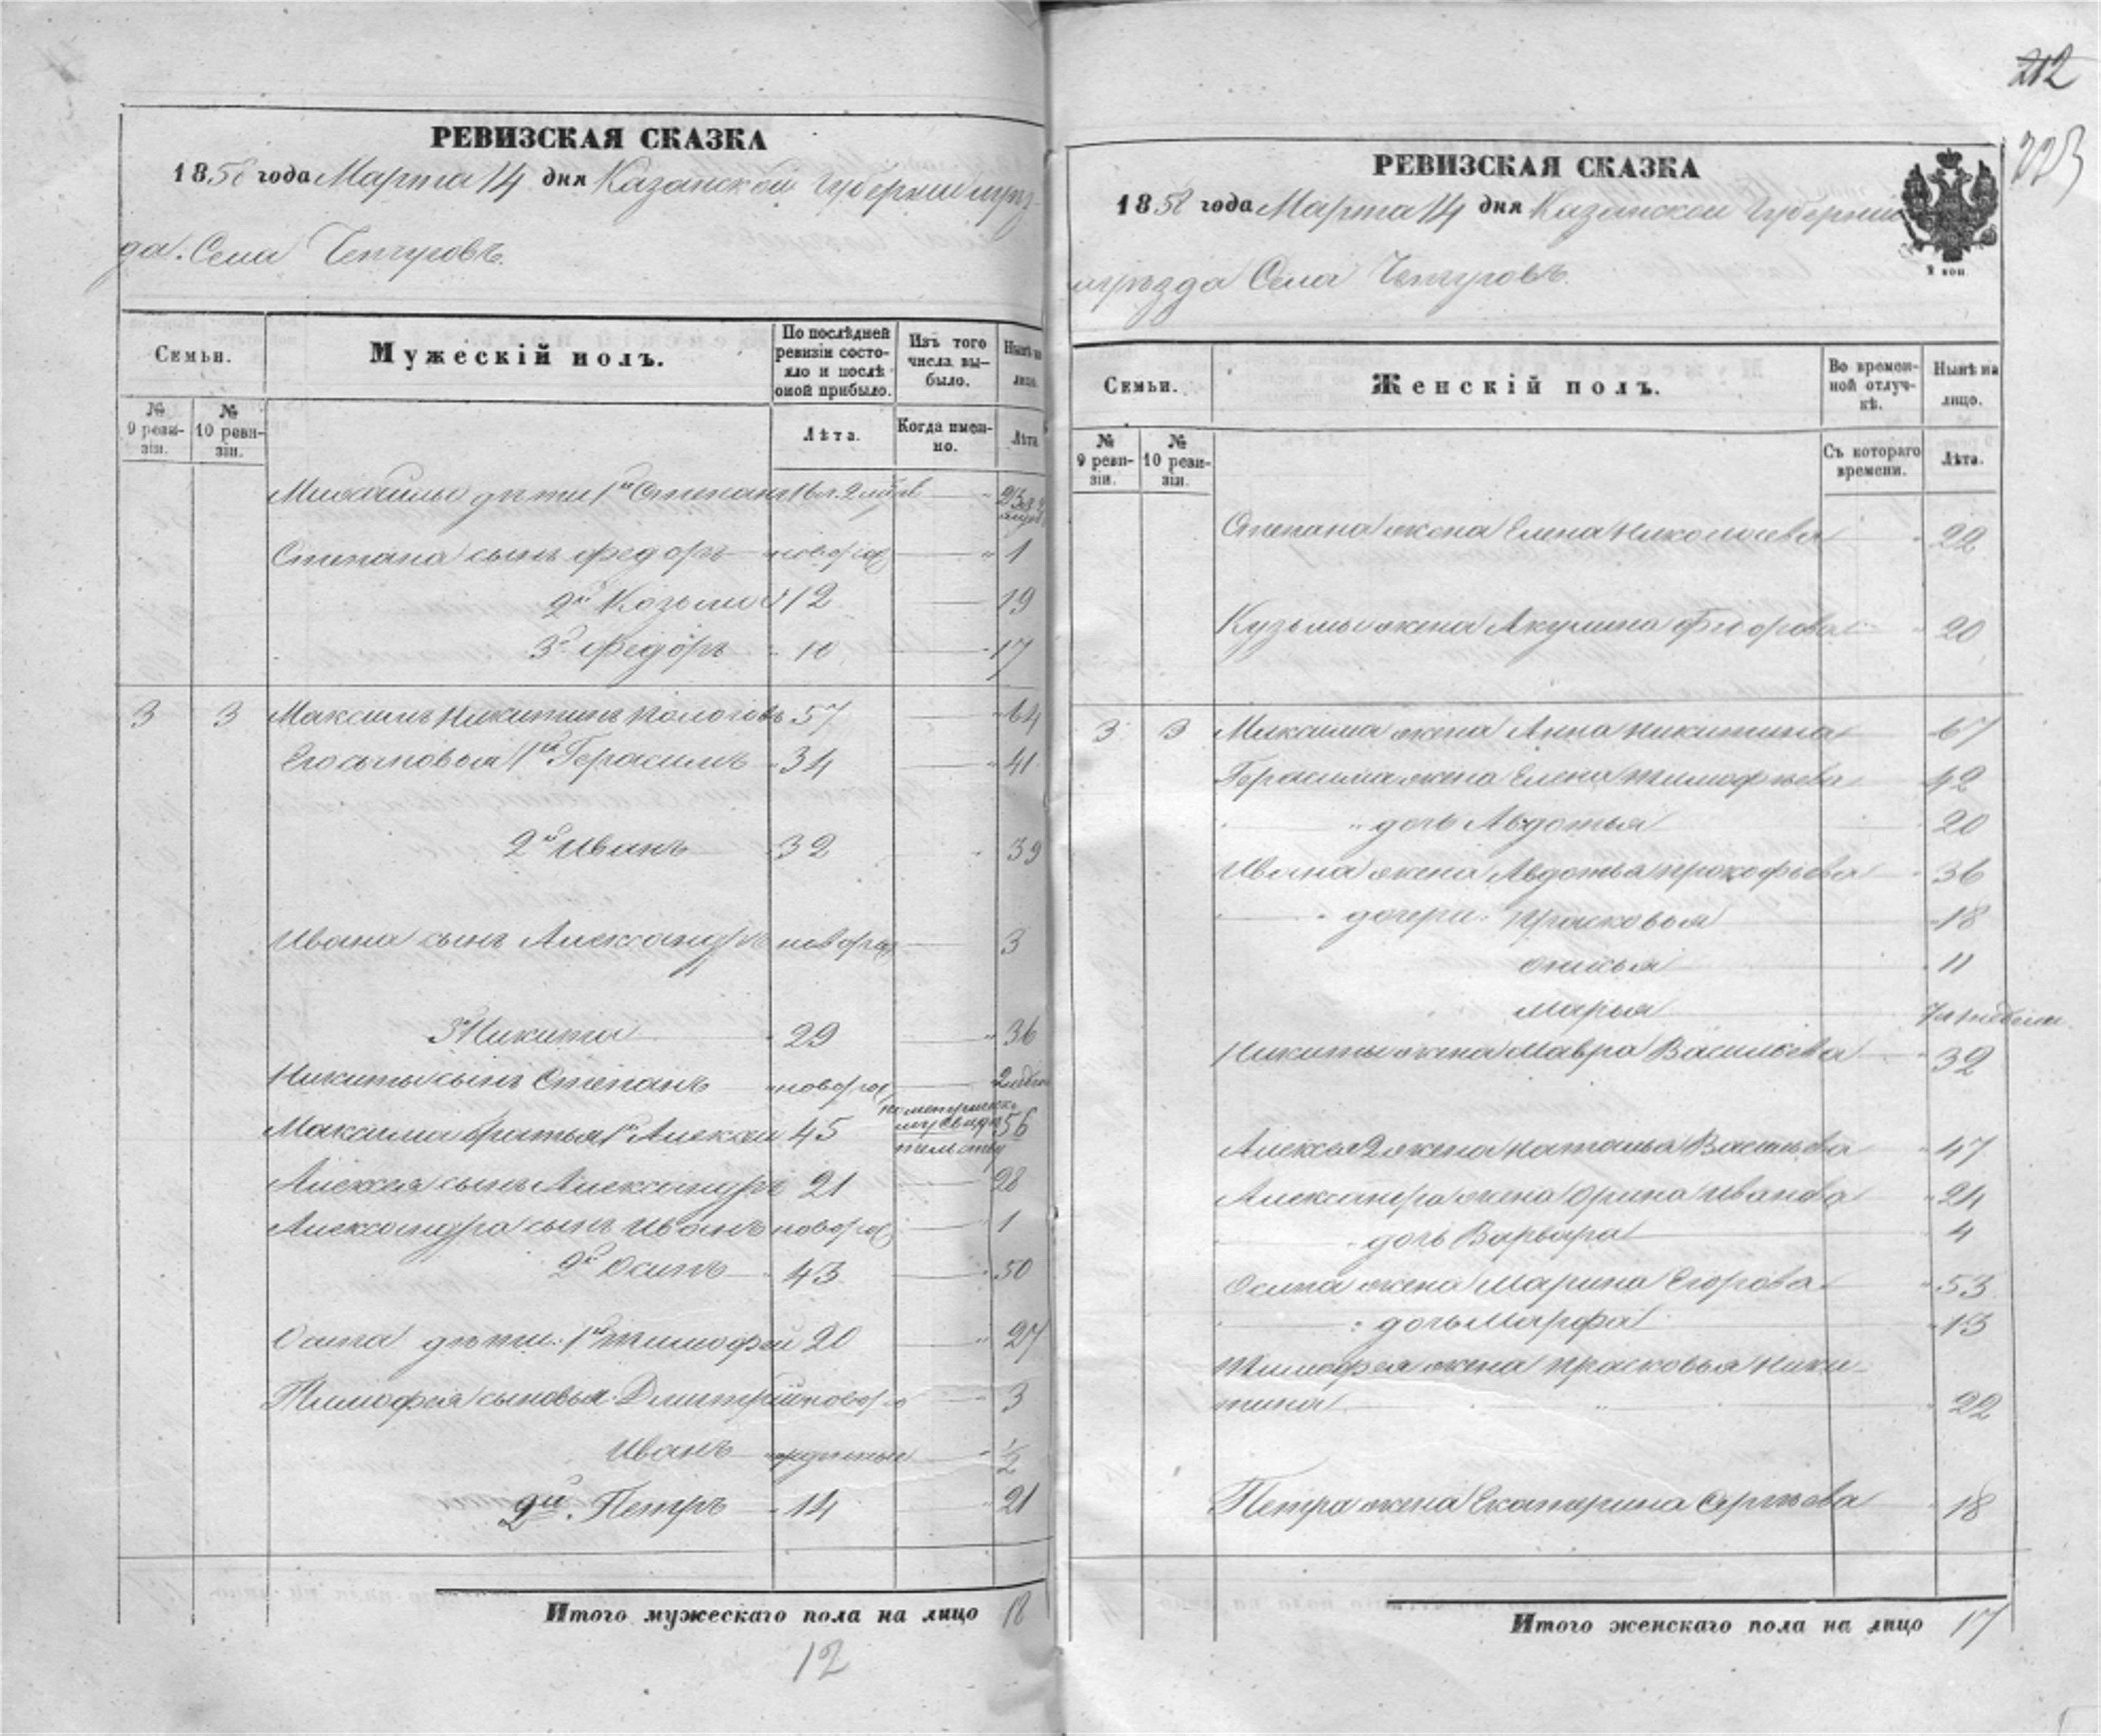 РЕВИЗСКАЯ СКАЗКА
1858 года Марта 14 дня Казанской Губернии уѣз-
да. Села Чепчуговъ.
Семьи.
Мужескій полъ.
По послѣдней ревизіи состояло и послѣ оной прибыло.
Изъ того числа вы-было.
Нынѣ на лицо.
№ 9 реви-зіи.
№ 10 реви-зіи.
Лѣта.
Когда имен-но.
Лѣта.
Михайлы дѣти 1й Степанъ 16 л. 23
Степана сынъ Федоръ новорож 1
2й Козьма 12 19
3й Федоръ 10 17
3 3 Максимъ Никитинъ 57 64
Его сыновья 1й Герасимъ 34 41
2й Иванъ 32 39
Ивана сынъ Александръ новорож 3
3й Никита 29 36
Никиты сынъ Степанъ новорож
Максима братья 1й Алексей 45 по метрическо му свидѣ тельству 56
Алексея сынъ Александръ 21 28
Александра сынъ Иванъ новорож 1
2й Осипъ 43 50
Осипа дѣти. 1й Тимофей 20 27
Тимофея сыновья Дмитрій новорож 3
Иванъ 1/2
2й. Петръ 14 21
Итого мужескаго пола на лицо 18
12
212
223
РЕВИЗСКАЯ СКАЗКА
1858 года Марта 14 дня Казанской Губерніи
уѣзда Села Чепчуговъ.
Семьи.
Женскій полъ.
Во времен-ной отлуч-кѣ.
Нынѣ на лицо.
№ 9 реви-зіи.
№ 10 реви-зіи.
Съ котораго времени.
Лѣта.
Степана жена Елена Николаева 22
Кузьмы жена Акулина Федорова 20
3 3 Максима жена Анна Никитина 67
Герасима жена Елена Тимофѣева 42
" дочь Авдотья 20
Ивана жена Авдотья Прокофьева 36
" дочери: Прасковья 18
Онисья 11
Марья
Никиты жена Мавра Васильева 32
Алексея жена Наталья Васильева 47
Александра жена Орина Иванова 24
дочь Варвара 4
Осипа жена Марина Егорова 53
" дочь Марфа 13
Тимофея жена Прасковья Ники-
тина 22
Петра жена Екатерина Сергѣева 18
Итого женскаго пола на лицо 17